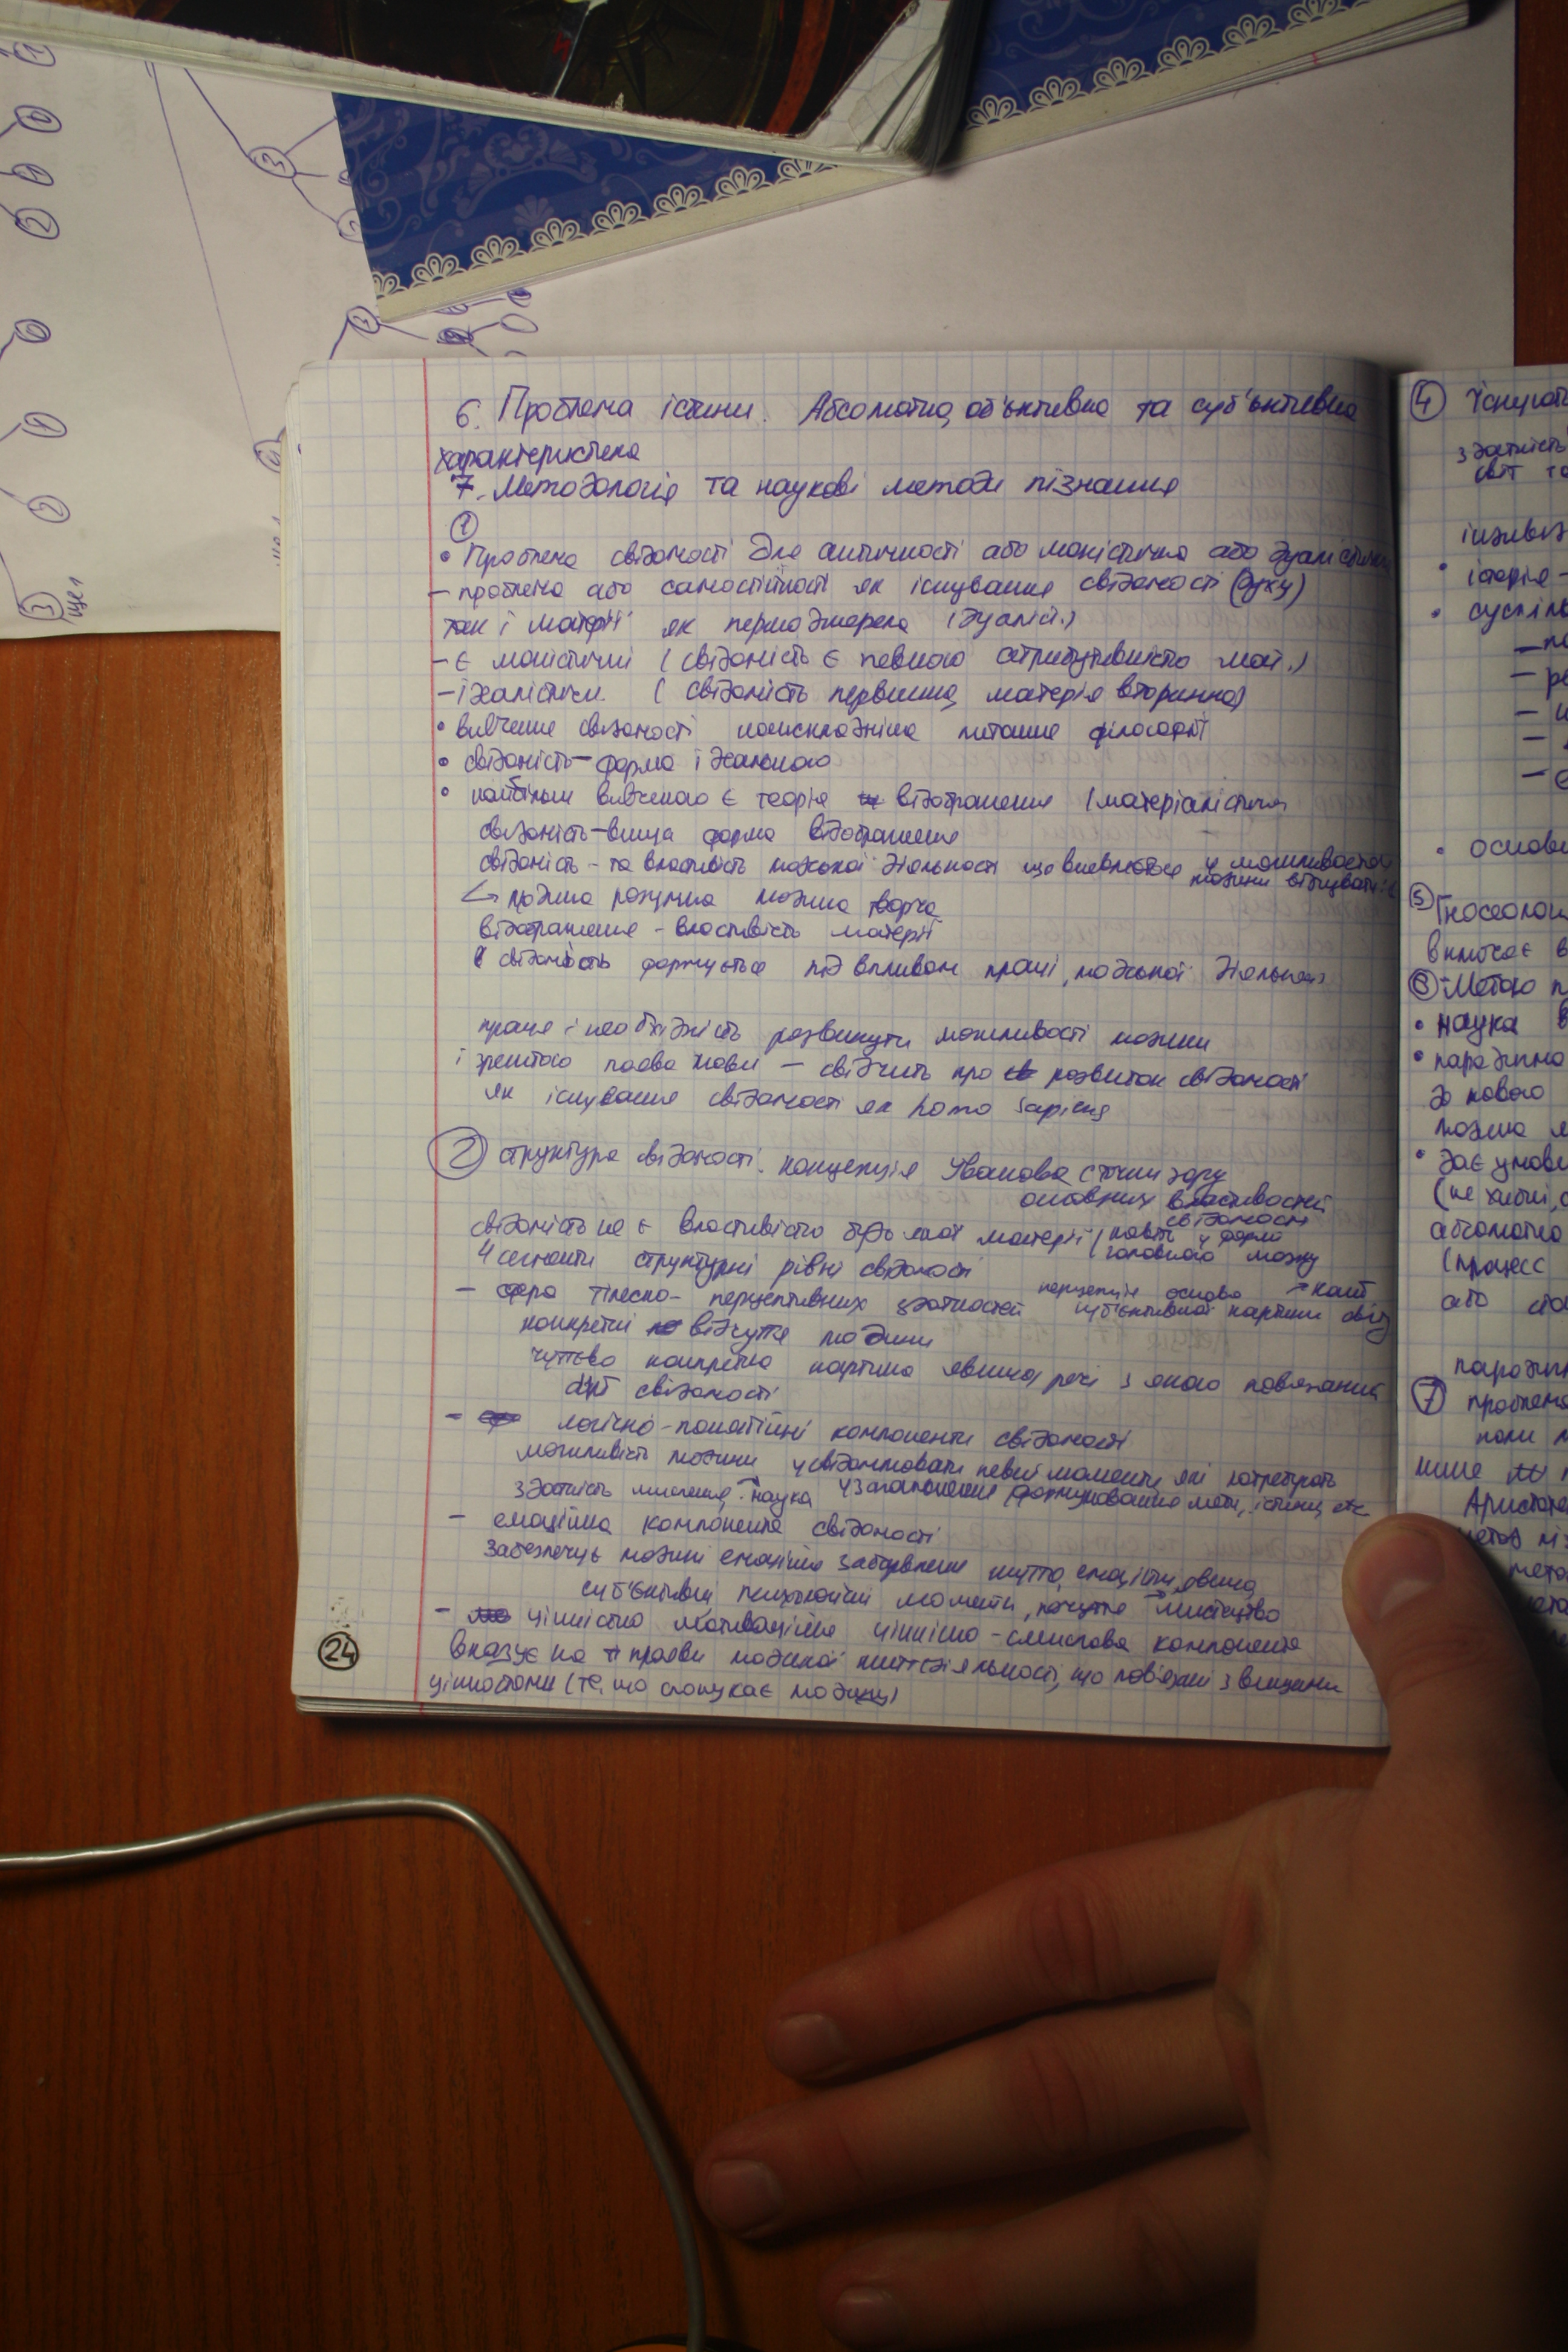 6. Проблема істини. Абсолютна, об'єктивна та суб'єктивна
характеристика
7. Методологія та наукові методи пізнання
①
• Проблема свідомості для античності або моністична або дуалістична
– проблема або самостійності як існування свідомості (духу)
так і матерії як першоджерела (дуаліст.)
– є моністичні (свідомість є певною атрибутивністю мат.)
– ідеалістичн. (свідомість первинна, матерія вторинна)
• вивчення свідомості найскладніше питання філософії
• свідомість – форма ідеального
• найбільш вивченою є теорія відображення (матеріалістична
свідомість – вища форма відображення
свідомість – та властивість людської діяльності що виявляється у можливостях
людини відчувати
↳ людина розумна людина творча
відображення – властивість матерії
свідомість формується під впливом праці, людської діяльност
праця і необхідність розвинути можливості людини
і зрештою поява мови – свідчить про розвиток свідомості
як існування свідомості як homo sapiens
② структура свідомості. концепція Іванова с точки зору
основних властивостей
свідомості
свідомість не є властивістю будь якої матерії (навіть у формі
головного мозку
4 сегменти структурні рівні свідомості
– сфера тілесно-перцептивних здатностей перцепція основа → Кант
суб'єктивної картини світу
конкретні відчуття людини
чуттєво конкретна картина явища, речі з якою пов'язаний
акт свідомості
– логічно-понятійні компоненти свідомості
можливість людини усвідомлювати певні моменти, які потребують
здатність мислення → наука узагальнення, формулювання мети, істини, etc
– емоційна компонента свідомості
забезпечує людині емоційне забарвлення життя, емоційні явища
суб'єктивні психологічні моменти, почуття → мистецтво
– ціннісно мотиваційна ціннісно-смислова компонента
вказує на прояви людської життєдіяльності, що пов'язані з вищими
цінностями (те, що спонукає людину)
24
④ Існують
здатність
світ та
• історія –
• суспіль
• основи
⑤ Гносеологі
включає в
⑥ Метою п
• наука в
• парадигма
до нового
• дає умови
абсолютно
(процесс
або
⑦ проблема
коли
лише
Аристоте
3
ще 1